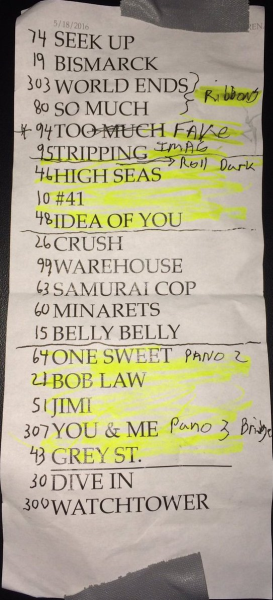 5/18/2016
74 SEEK UP
19 BISMARCK
303 WORLD ENDS } Ribbons
80 SO MUCH
* 94 TOO MUCH FAKE
95 STRIPPING IMAG
→ Roll Dark
46 HIGH SEAS
10 #41
48 IDEA OF YOU
26 CRUSH
99 WAREHOUSE
63 SAMURAI COP
60 MINARETS
15 BELLY BELLY
64 ONE SWEET PANO 2
21 BOB LAW
51 JIMI
307 YOU & ME Pano 3 Bridge
43 GREY ST.
30 DIVE IN
300 WATCHTOWER